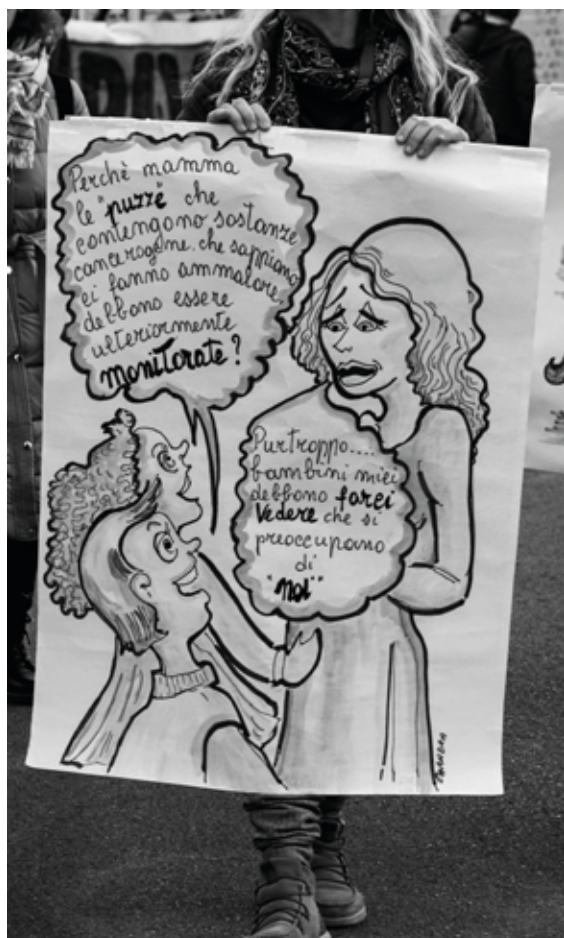 Perchè mamma
le "puzze" che
contengono sostanze
cancerogene. che sappiamo
ci fanno ammalare.
debbono essere
ulteriormente
moniTorate?
Purtroppo....
bambini miei
debbono farci
Vedere che si
preoccupano
di
"noi"